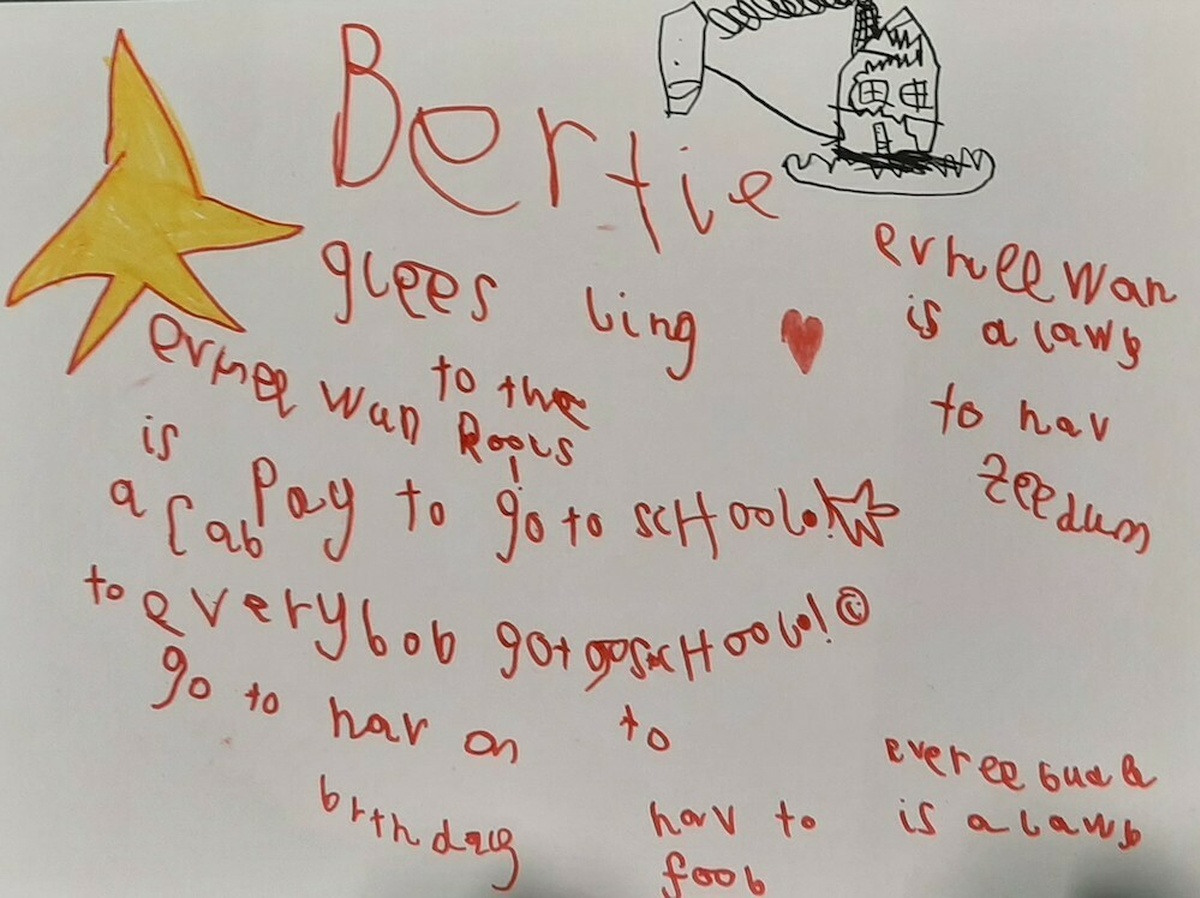 Bertie
glees ling
to the
Rools
ernee wan
is
a lab
Pay to go to scHool!
to everybob got go scHool!
go to hav on
brthday
to
hav to
foob
ernee wan
is a lawb
to hav
zeedum
everee bude
is a lawb